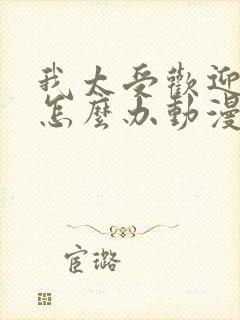 我太受歡迎
怎麼办動漫
宦璐